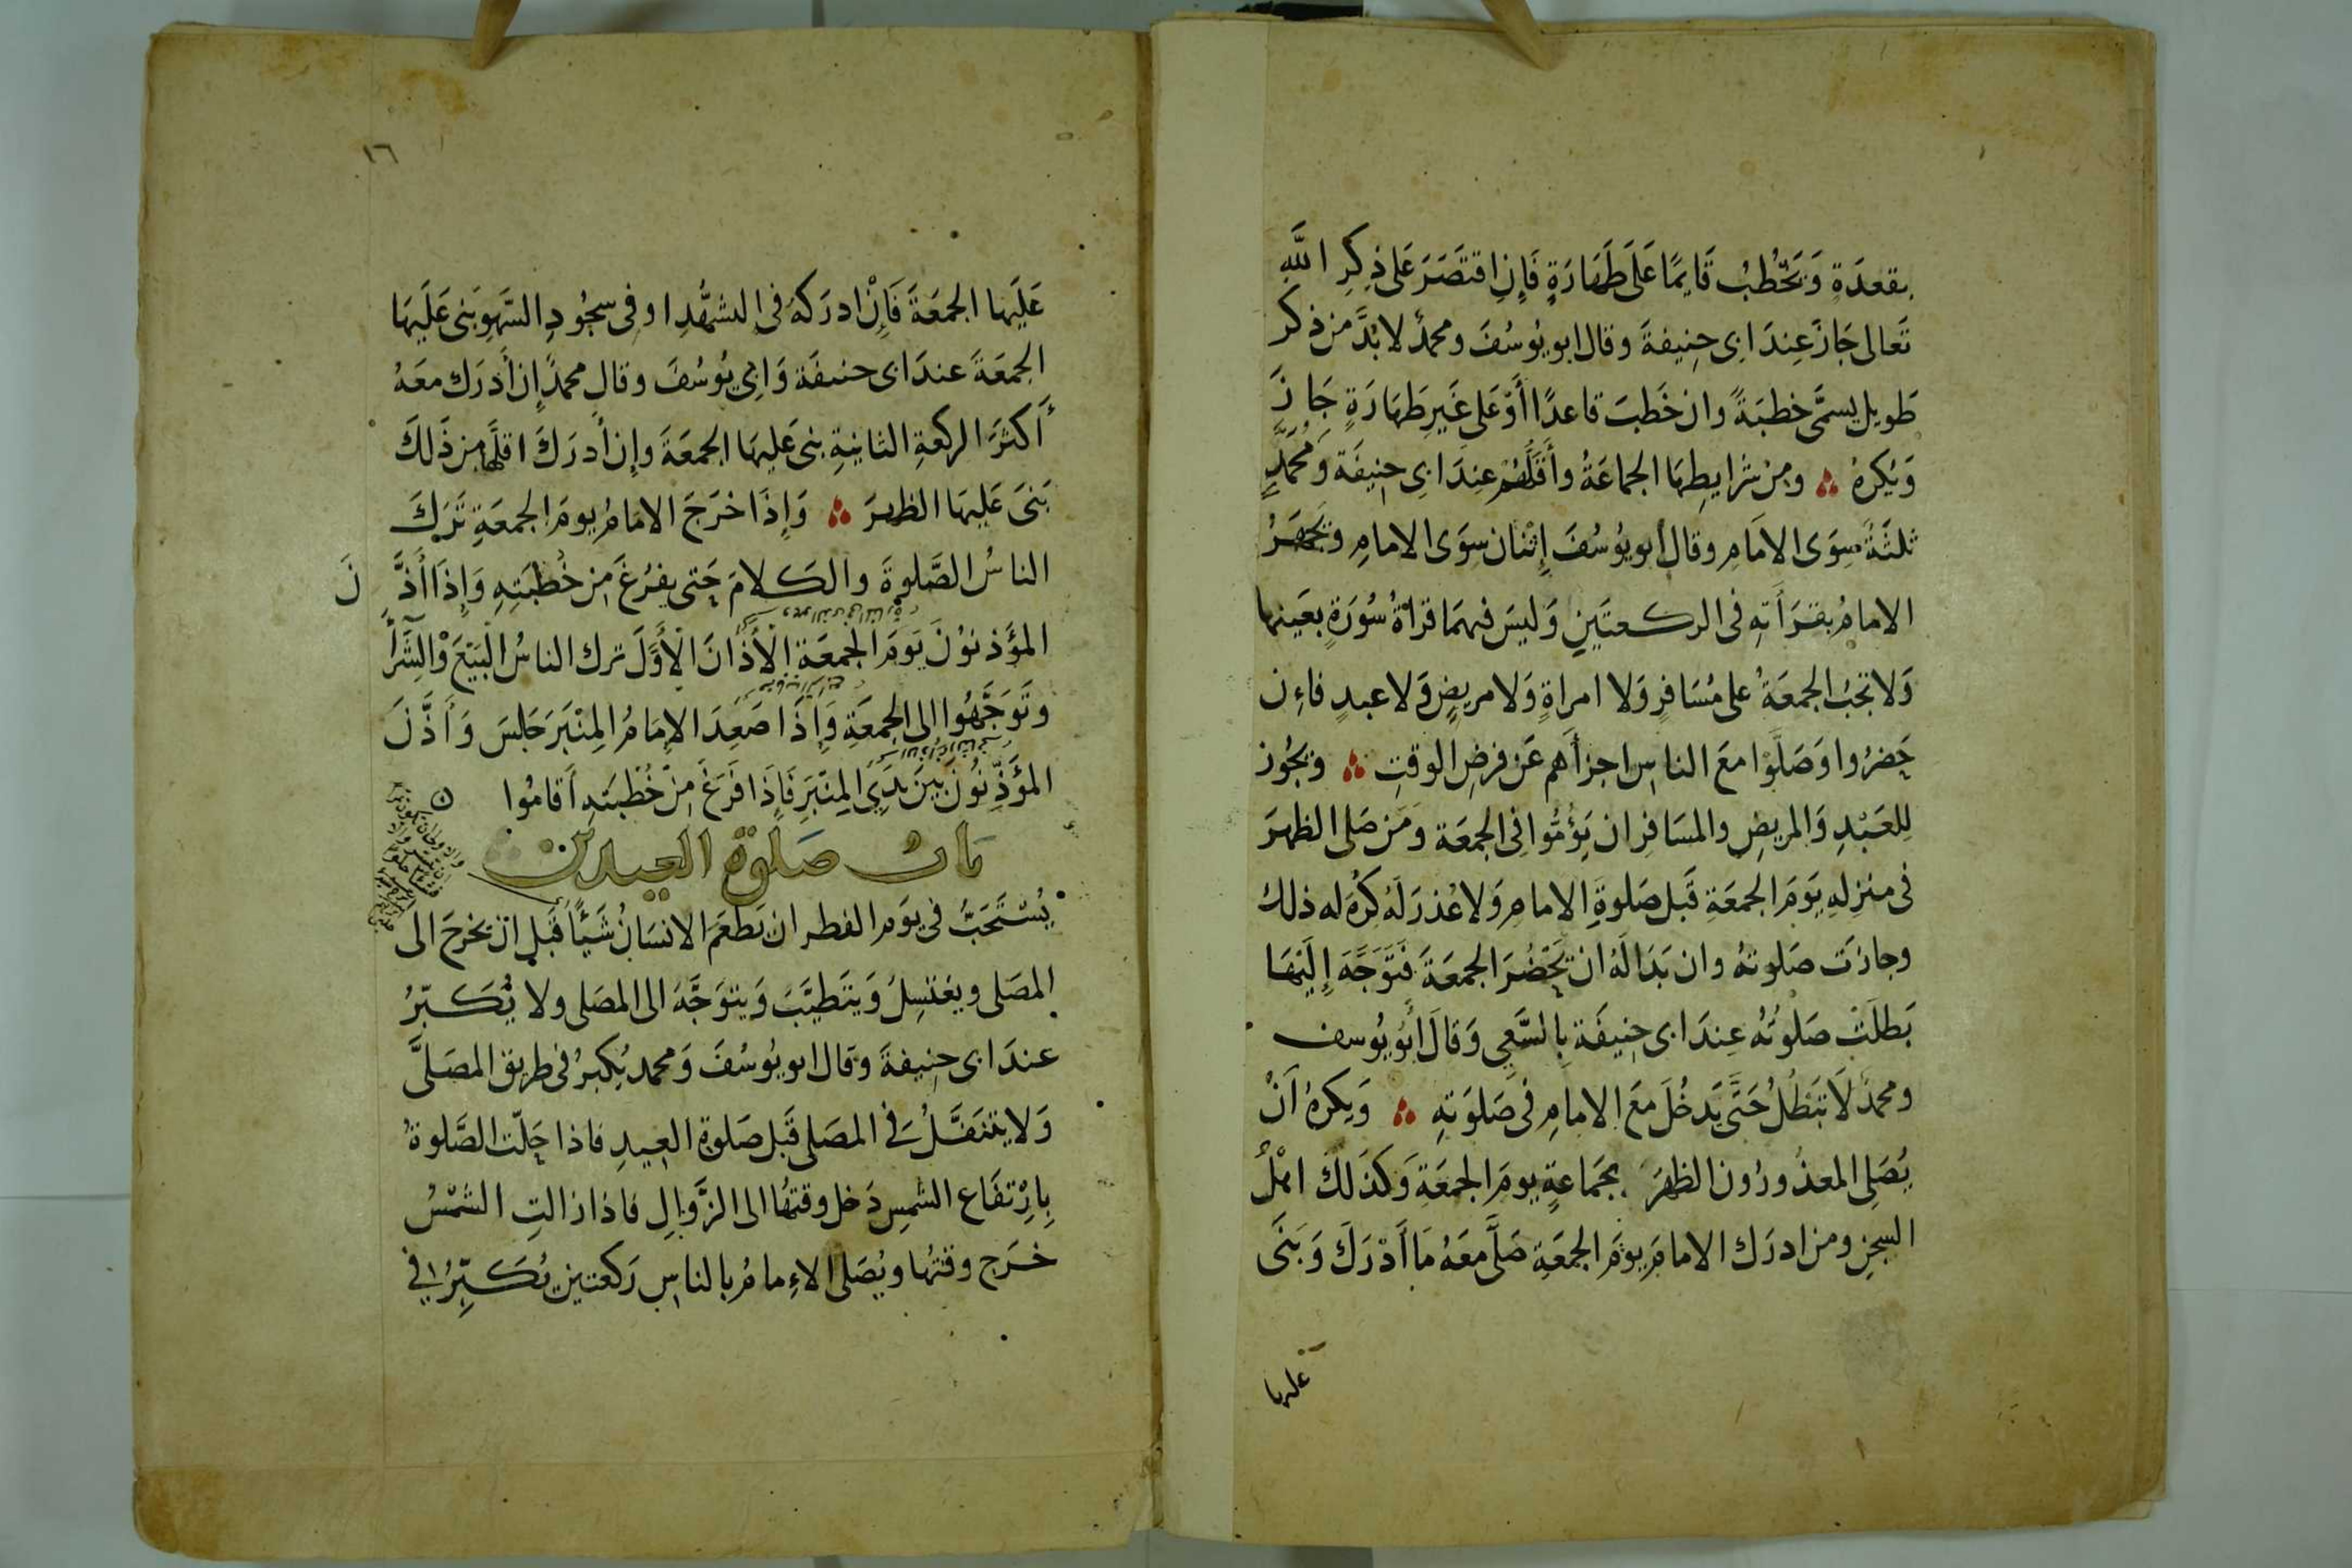 بقعدَةٍ وَيَخْطُبُ قَايِمًا عَلَى طَهَارَةٍ فَإِنِ اقتَصَرَ عَلى ذِكِرِ اللّٰهِ
تَعالى جَازَ عِندَ ابى حنِيفةَ وقال ابو يُوسُفَ ومحمدٌ لا بُدَّ من ذكر
طَويل يسمَّى خطبَةً وان خَطَبَ قاعدًا أَوْ عَلى غَيرِ طَهارَةٍ جَازَ
وَيُكرهُ ومن شرايطِهَا الجماعَةُ وأَقَلُّهُمْ عِندَ ابى حنِيفَة وَمُحَمَّدٍ
ثلثَةٌ سِوَى الامَامِ وقال أبو يوُسُفَ إِثْنان سِوَى الامامِ ويَجهَرُ
الامامُ بقرَأَتهِ فى الركعتَينِ وَليسَ فيهمَا قرأةُ سُورَةٍ بعَينها
وَلا تجبُ الجمعَةُ على مُسَافرٍ وَلا امراةٍ وَلا مريضٍ وَلا عبدٍ فاءِن
حَضرُوا وَصَلَّوْا معَ الناسِ اجزأهم عَن فرضِ الوقتِ ويجُوز
لِلعَبْدِ وَالمريضِ والمسَافِرِ ان يَؤُمُّوا فِى الجمعَة وَمَن صَلى الظهرَ
فى منزلهِ يَومَ الجمعَةِ قَبل صَلوةِ الامامِ وَلا عُذرَ لَهُ كُرِهَ له ذلك
وجازَت صَلوتهُ وان بَدَا لَهُ ان يَحْضُرَ الجمعَةَ فتَوَجَّهَ إِلَيْهَا
بَطلَتْ صَلوتُهُ عِندَ ابى حنِيفَة بِالسَّعىِ وَقالَ أبُو يُوسف
ومحمدٌ لَا تبَطُلُ حَتَّى يَدخُلَ مَعَ الامامِ فى صَلوَتهِ وَيكرهُ اَنْ
يُصَلِى المعذُورُون الظهرَ بجَماعةٍ يومَ الجمعَةِ وَكذَلكَ اهْلُ
السجنِ ومن ادرَك الامامَ يومَ الجمعَةِ صَلَّى معَهُ مَا أَدْرَكَ وَبَنَى
عليها
١٦
عَلَيها الجمعَةَ فَإِنْ ادرَكهُ فى التشهُّدِ اوفى سجُودِ السَّهوِ بَنى عَلَيهَا
الجمعَةَ عندَ ابى حنيفَة وَابى يوُسُفَ وقال محمدٌ إِن أَدرَك معَهُ
أَكثرَ الركعةِ الثانيةِ بنى عَليهَا الجمعَةَ وإِن أَدرَكَ اقلَّهَا من ذَلكَ
بَنىَ عَليهَا الظهرَ وَإِذَا خرَجَ الامَامُ يومَ الجمعَةِ تَرَكَ
الناسُ الصَّلوةَ والكَلامَ حَتى يفرُغَ مِن خُطبَتِهِ وَإِذَا أَذَّنَ
المؤَذنوُنَ يَومَ الجُمعَةِ الْأَذَانَ الْأَوَّلَ ترك الناسُ الْبَيْعَ وَالشِّرَآ
وتَوَجَّهُوا إلى الجمعَةِ وَإِذَا صَعِدَ الاِمَامُ المِنْبَرَ جَلسَ وَأَذَّنَ
المؤَذِّنوُنَ بينَ يَدَىِ المِنْبَرِ فَاِذَا فَرَغَ مِنْ خُطْبَتهِ أَقامُوا
باب صَلوة العيدين
يُسْتَحَبُّ فى يوَم الفطر ان يَطعَمَ الانسَانُ شَيْئًا قَبل ان يخرجَ الى
المصَلى ويغتسِلُ وَيتَطيَّبَ وَيتوَجَّهَ الى المصَلى ولا يُكَبّرُ
عندَ ابى حنِيفةَ وقال ابو يوُسُفَ وَمحمد يُكبرُ فى طريق المصَلَّى
وَلا يتنَفَّلُ فى المصَلى قَبل صَلوةِ العِيدِ فاذا حَلّت الصَّلوةُ
بِارِتفَاع الشمسِ دَخل وقتهُا الى الزَّوَالِ فاذا زالتِ الشمْسُ
خرَج وقتهُا ويُصَلى الاءِمامُ بالناسِ رَكعتين يُكَبِّرُ فى